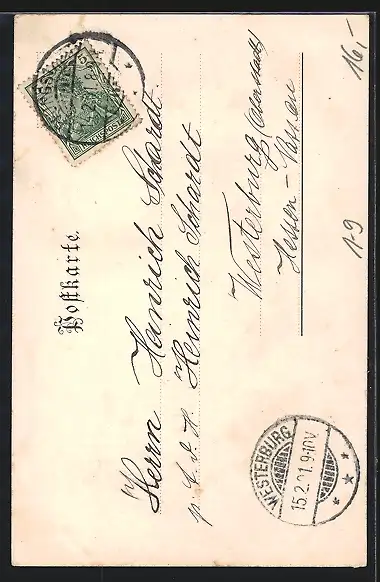 Postkarte.
Herrn Heinrich Schardt
p. Heinrich Schardt
Westerburg (Oberstadt)
Hessen-Nassau
WESTERBURG
15.2.01.9-10V
16,-
1-9